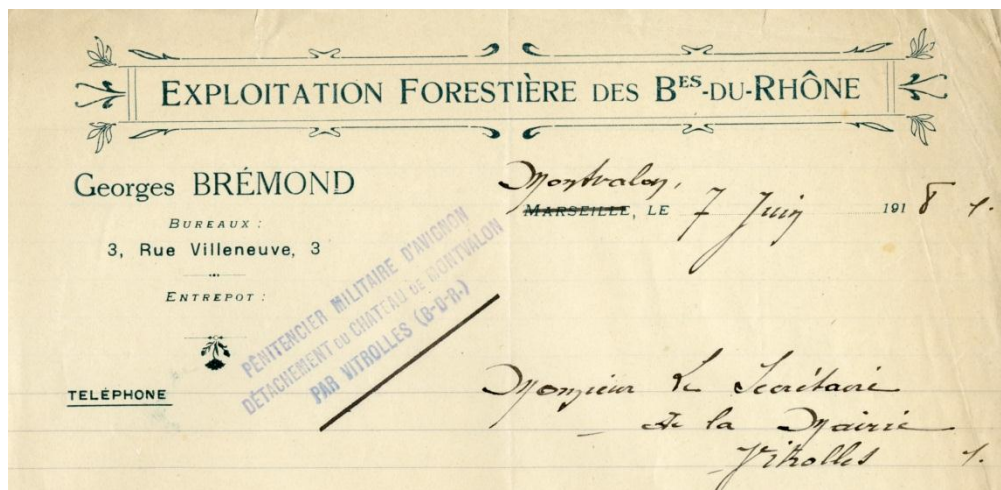 EXPLOITATION FORESTIÈRE DES BES-DU-RHÔNE
Georges BRÉMOND
BUREAUX :
3, Rue Villeneuve, 3
ENTREPOT :
TELÉPHONE
PÉNITENCIER MILITAIRE D'AVIGNON
DÉTACHEMENT DU CHATEAU DE MONTVALON
PAR VITROLLES (B-D-R.)
Montvalon,
MARSEILLE, LE 7 Juin 1918
Monsieur Le Secrétaire
de la Mairie
Vitrolles